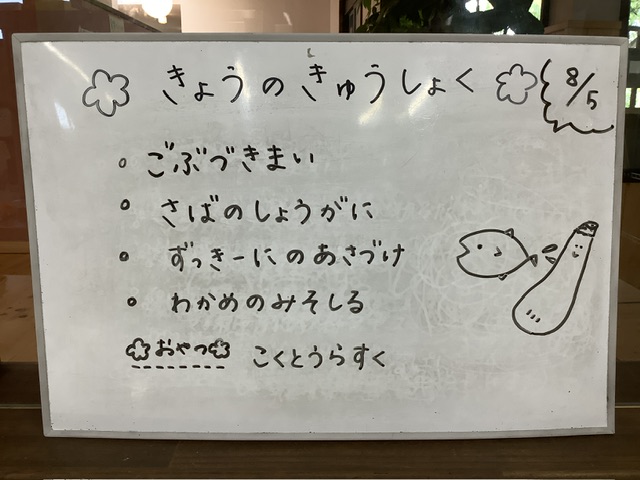 きょうのきゅうしょく
8/5
ごぶづきまい
さばのしょうがに
ずっきーにのあさづけ
わかめのみそしる
おやつ こくとうらすく